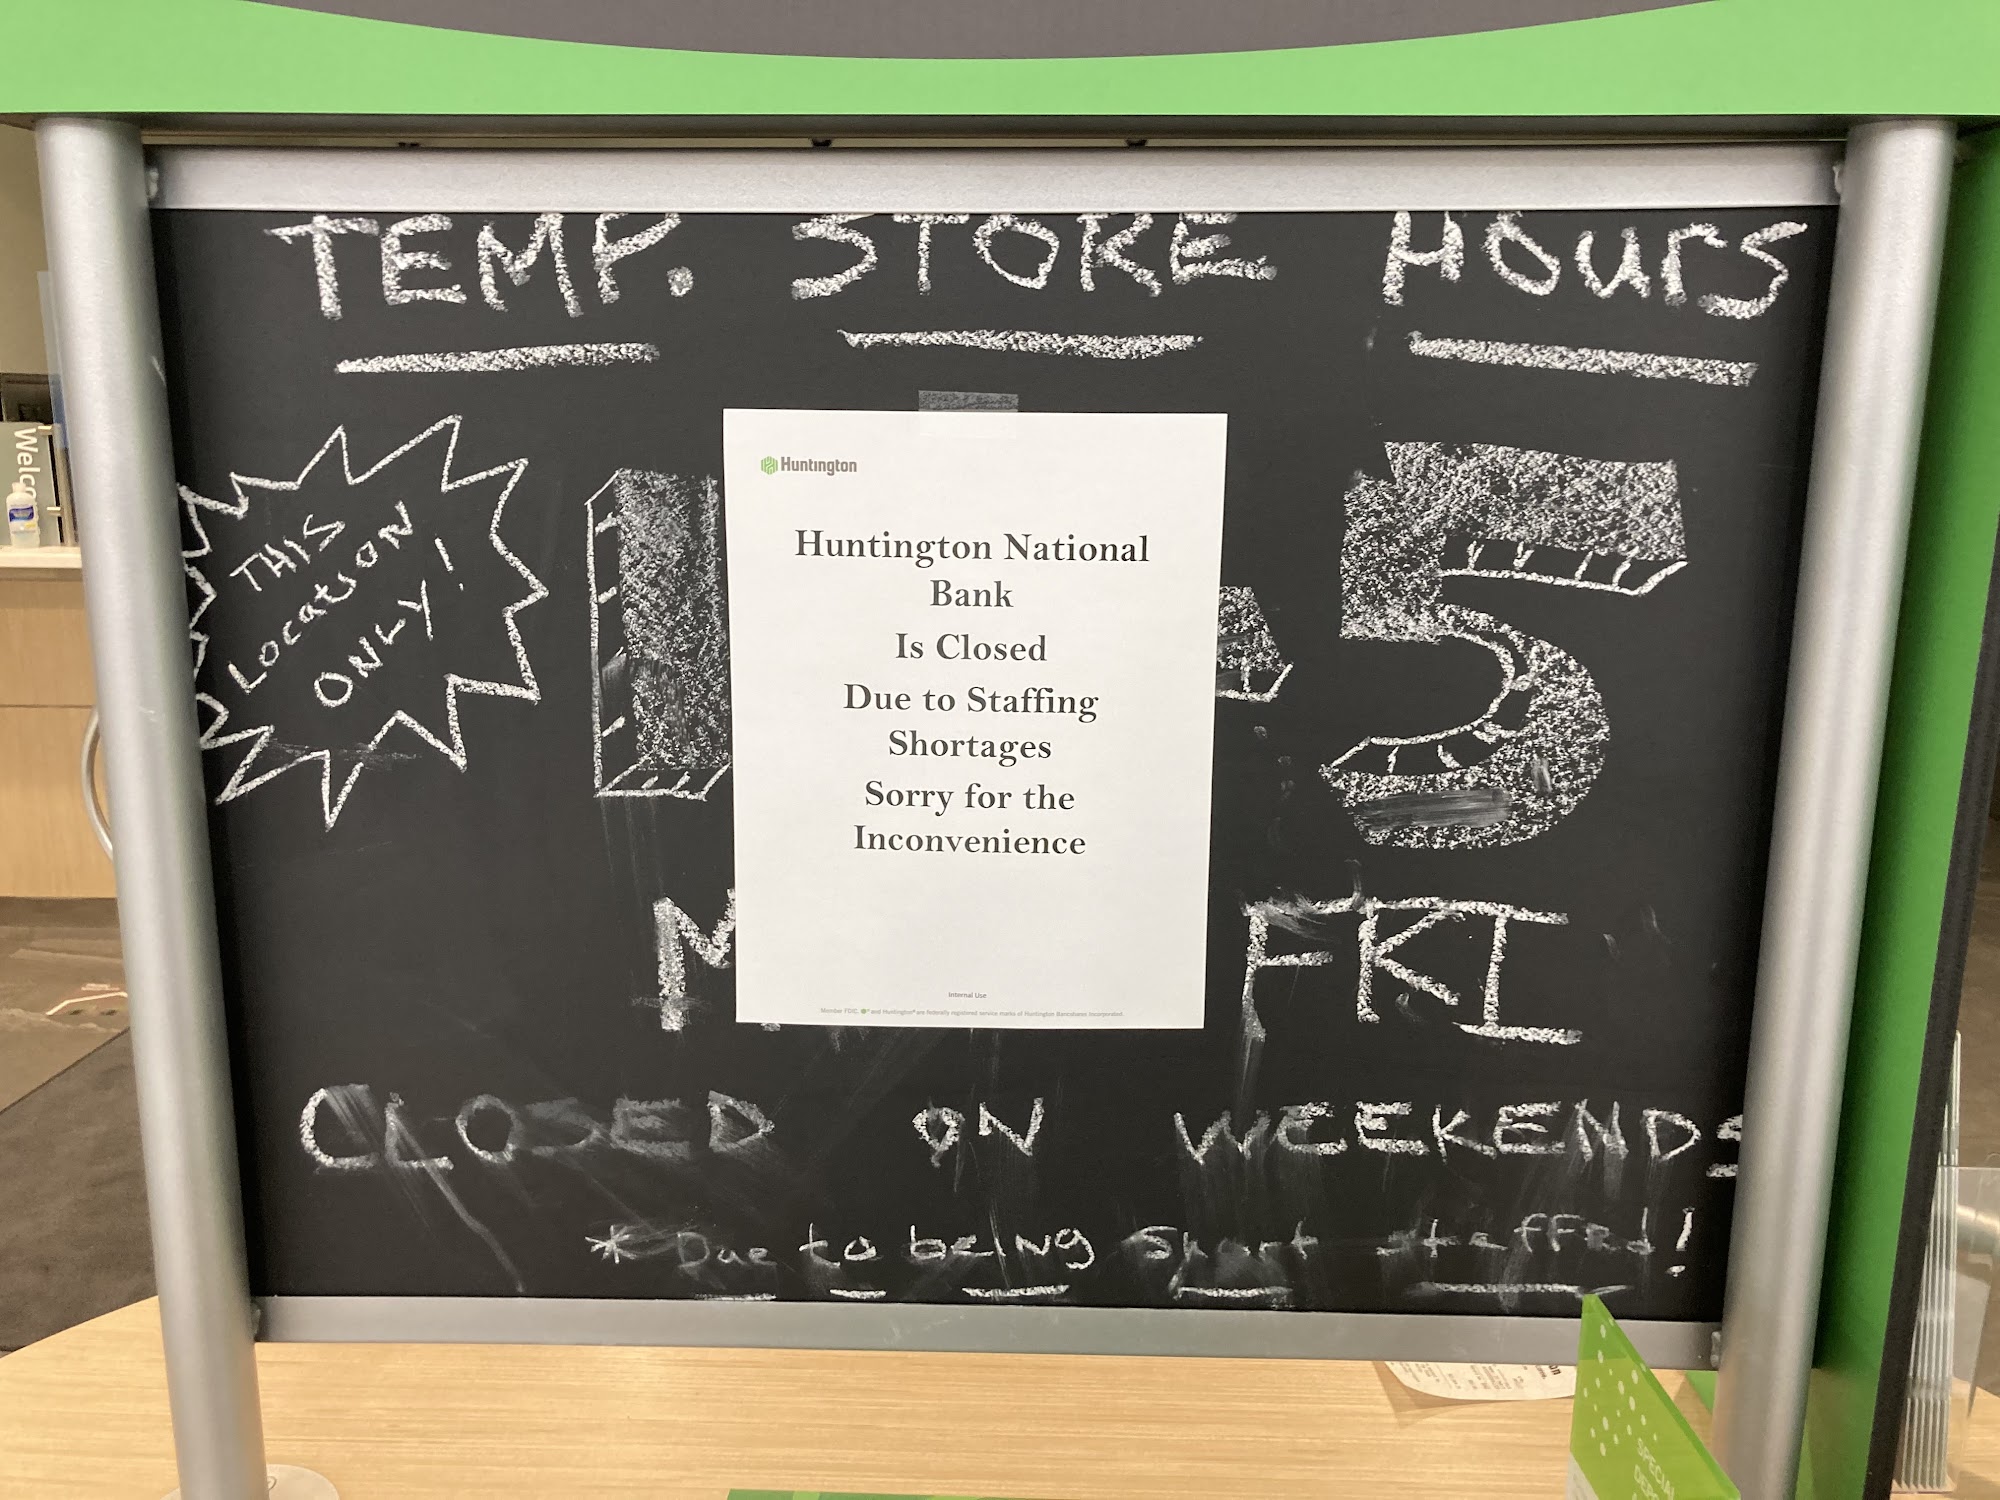 TEMP. STORE HOURS
THIS
LOCATION
ONLY!
Huntington
Huntington National
Bank
Is Closed
Due to Staffing
Shortages
Sorry for the
Inconvenience
Internal Use
Member FDIC. ®and Huntington® are federally registered service marks of Huntington Bancshares Incorporated.
5
M
FRI
CLOSED ON WEEKENDS
*Due to being short staffed!
Welco
SPECIAL